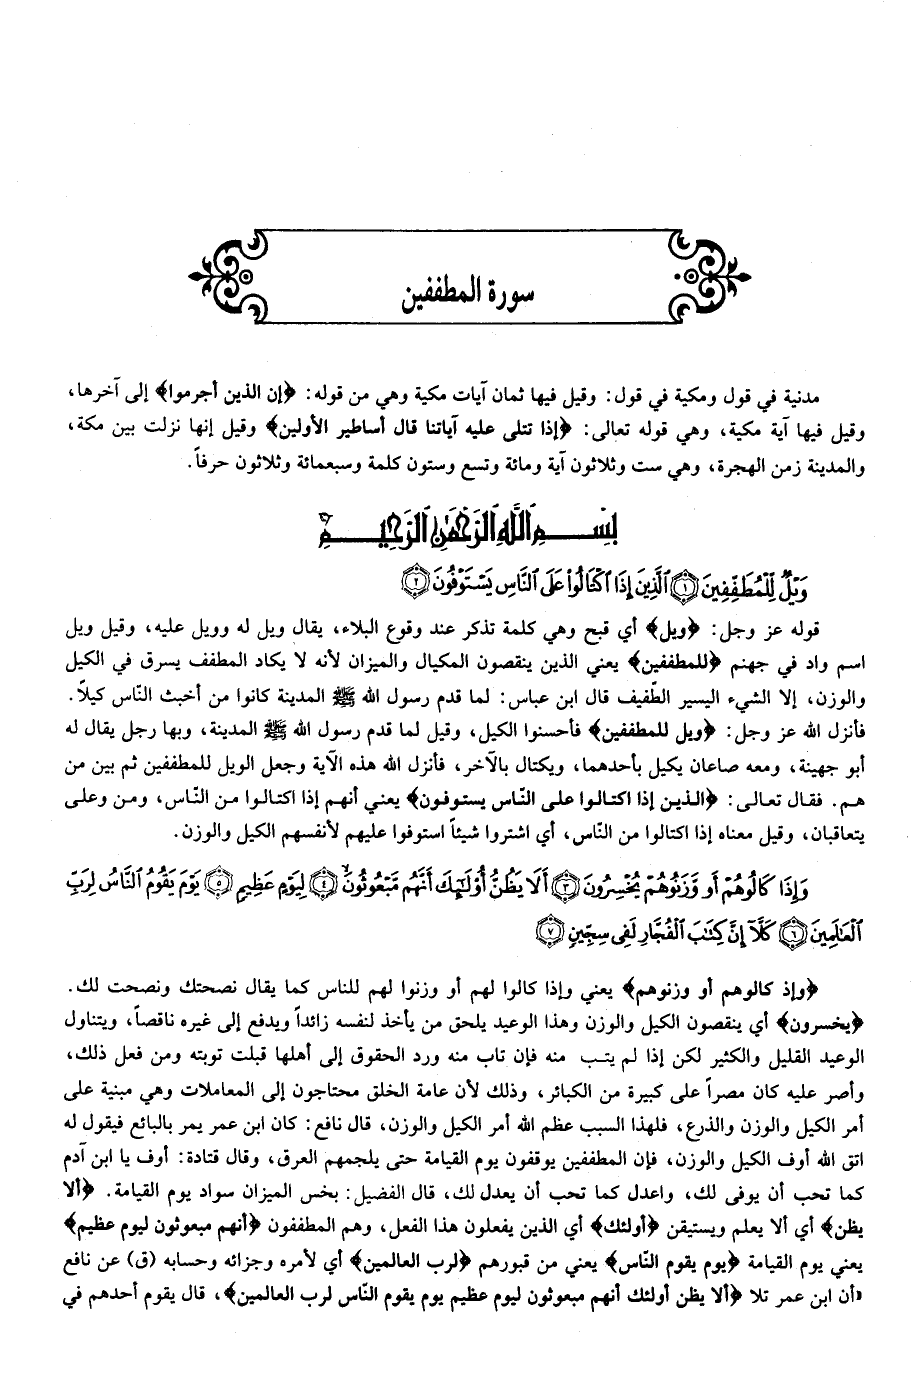 سورة المطففين
مدنية في قول ومكية في قول: وقيل فيها ثمان آيات مكية وهي من قوله: ﴿إن الذين أجرموا﴾ إلى آخرها،
وقيل فيها آية مكية، وهي قوله تعالى: ﴿إذا تتلى عليه آياتنا قال أساطير الأولين﴾ وقيل إنها نزلت بين مكة،
والمدينة زمن الهجرة، وهي ست وثلاثون آية ومائة وتسع وستون كلمة وسبعمائة وثلاثون حرفاً.
بِسْمِ اللَّهِ الرَّحْمَٰنِ الرَّحِيمِ
وَيْلٌ لِّلْمُطَفِّفِينَ ﴿١﴾ ٱلَّذِينَ إِذَا ٱكْتَالُوا۟ عَلَى ٱلنَّاسِ يَسْتَوْفُونَ ﴿٢﴾
قوله عز وجل: ﴿ويل﴾ أي قبح وهي كلمة تذكر عند وقوع البلاء، يقال ويل له وويل عليه، وقيل ويل
اسم واد في جهنم ﴿للمطففين﴾ يعني الذين ينقصون المكيال والميزان لأنه لا يكاد المطفف يسرق في الكيل
والوزن، إلا الشيء اليسير الطّفيف قال ابن عباس: لما قدم رسول الله ﷺ المدينة كانوا من أخبث النّاس كيلاً.
فأنزل الله عز وجل: ﴿ويل للمطففين﴾ فأحسنوا الكيل، وقيل لما قدم رسول الله ﷺ المدينة، وبها رجل يقال له
أبو جهينة، ومعه صاعان يكيل بأحدهما، ويكتال بالآخر، فأنزل الله هذه الآية وجعل الويل للمطففين ثم بين من
هم. فقال تعالى: ﴿الذين إذا اكتالوا على النّاس يستوفون﴾ يعني أنهم إذا اكتالوا من النّاس، ومن وعلى
يتعاقبان، وقيل معناه إذا اكتالوا من النّاس، أي اشتروا شيئاً استوفوا عليهم لأنفسهم الكيل والوزن.
وَإِذَا كَالُوهُمْ أَو وَّزَنُوهُمْ يُخْسِرُونَ ﴿٣﴾ أَلَا يَظُنُّ أُو۟لَٰٓئِكَ أَنَّهُم مَّبْعُوثُونَ ﴿٤﴾ لِيَوْمٍ عَظِيمٍ ﴿٥﴾ يَوْمَ يَقُومُ ٱلنَّاسُ لِرَبِّ
ٱلْعَٰلَمِينَ ﴿٦﴾ كَلَّآ إِنَّ كِتَٰبَ ٱلْفُجَّارِ لَفِى سِجِّينٍ ﴿٧﴾
﴿وإذ كالوهم أو وزنوهم﴾ يعني وإذا كالوا لهم أو وزنوا لهم للناس كما يقال نصحتك ونصحت لك.
﴿يخسرون﴾ أي ينقصون الكيل والوزن وهذا الوعيد يلحق من يأخذ لنفسه زائداً ويدفع إلى غيره ناقصاً، ويتناول
الوعيد القليل والكثير لكن إذا لم يتب منه فإن تاب منه ورد الحقوق إلى أهلها قبلت توبته ومن فعل ذلك،
وأصر عليه كان مصراً على كبيرة من الكبائر، وذلك لأن عامة الخلق محتاجون إلى المعاملات وهي مبنية على
أمر الكيل والوزن والذرع، فلهذا السبب عظم الله أمر الكيل والوزن، قال نافع: كان ابن عمر يمر بالبائع فيقول له
اتق الله أوف الكيل والوزن، فإن المطففين يوقفون يوم القيامة حتى يلجمهم العرق، وقال قتادة: أوف يا ابن آدم
كما تحب أن يوفى لك، واعدل كما تحب أن يعدل لك، قال الفضيل: بخس الميزان سواد يوم القيامة. ﴿ألا
يظن﴾ أي ألا يعلم ويستيقن ﴿أولئك﴾ أي الذين يفعلون هذا الفعل، وهم المطففون ﴿أنهم مبعوثون ليوم عظيم﴾
يعني يوم القيامة ﴿يوم يقوم النّاس﴾ يعني من قبورهم ﴿لرب العالمين﴾ أي لأمره وجزائه وحسابه (ق) عن نافع
«أن ابن عمر تلا ﴿ألا يظن أولئك أنهم مبعوثون ليوم عظيم يوم يقوم النّاس لرب العالمين﴾، قال يقوم أحدهم في